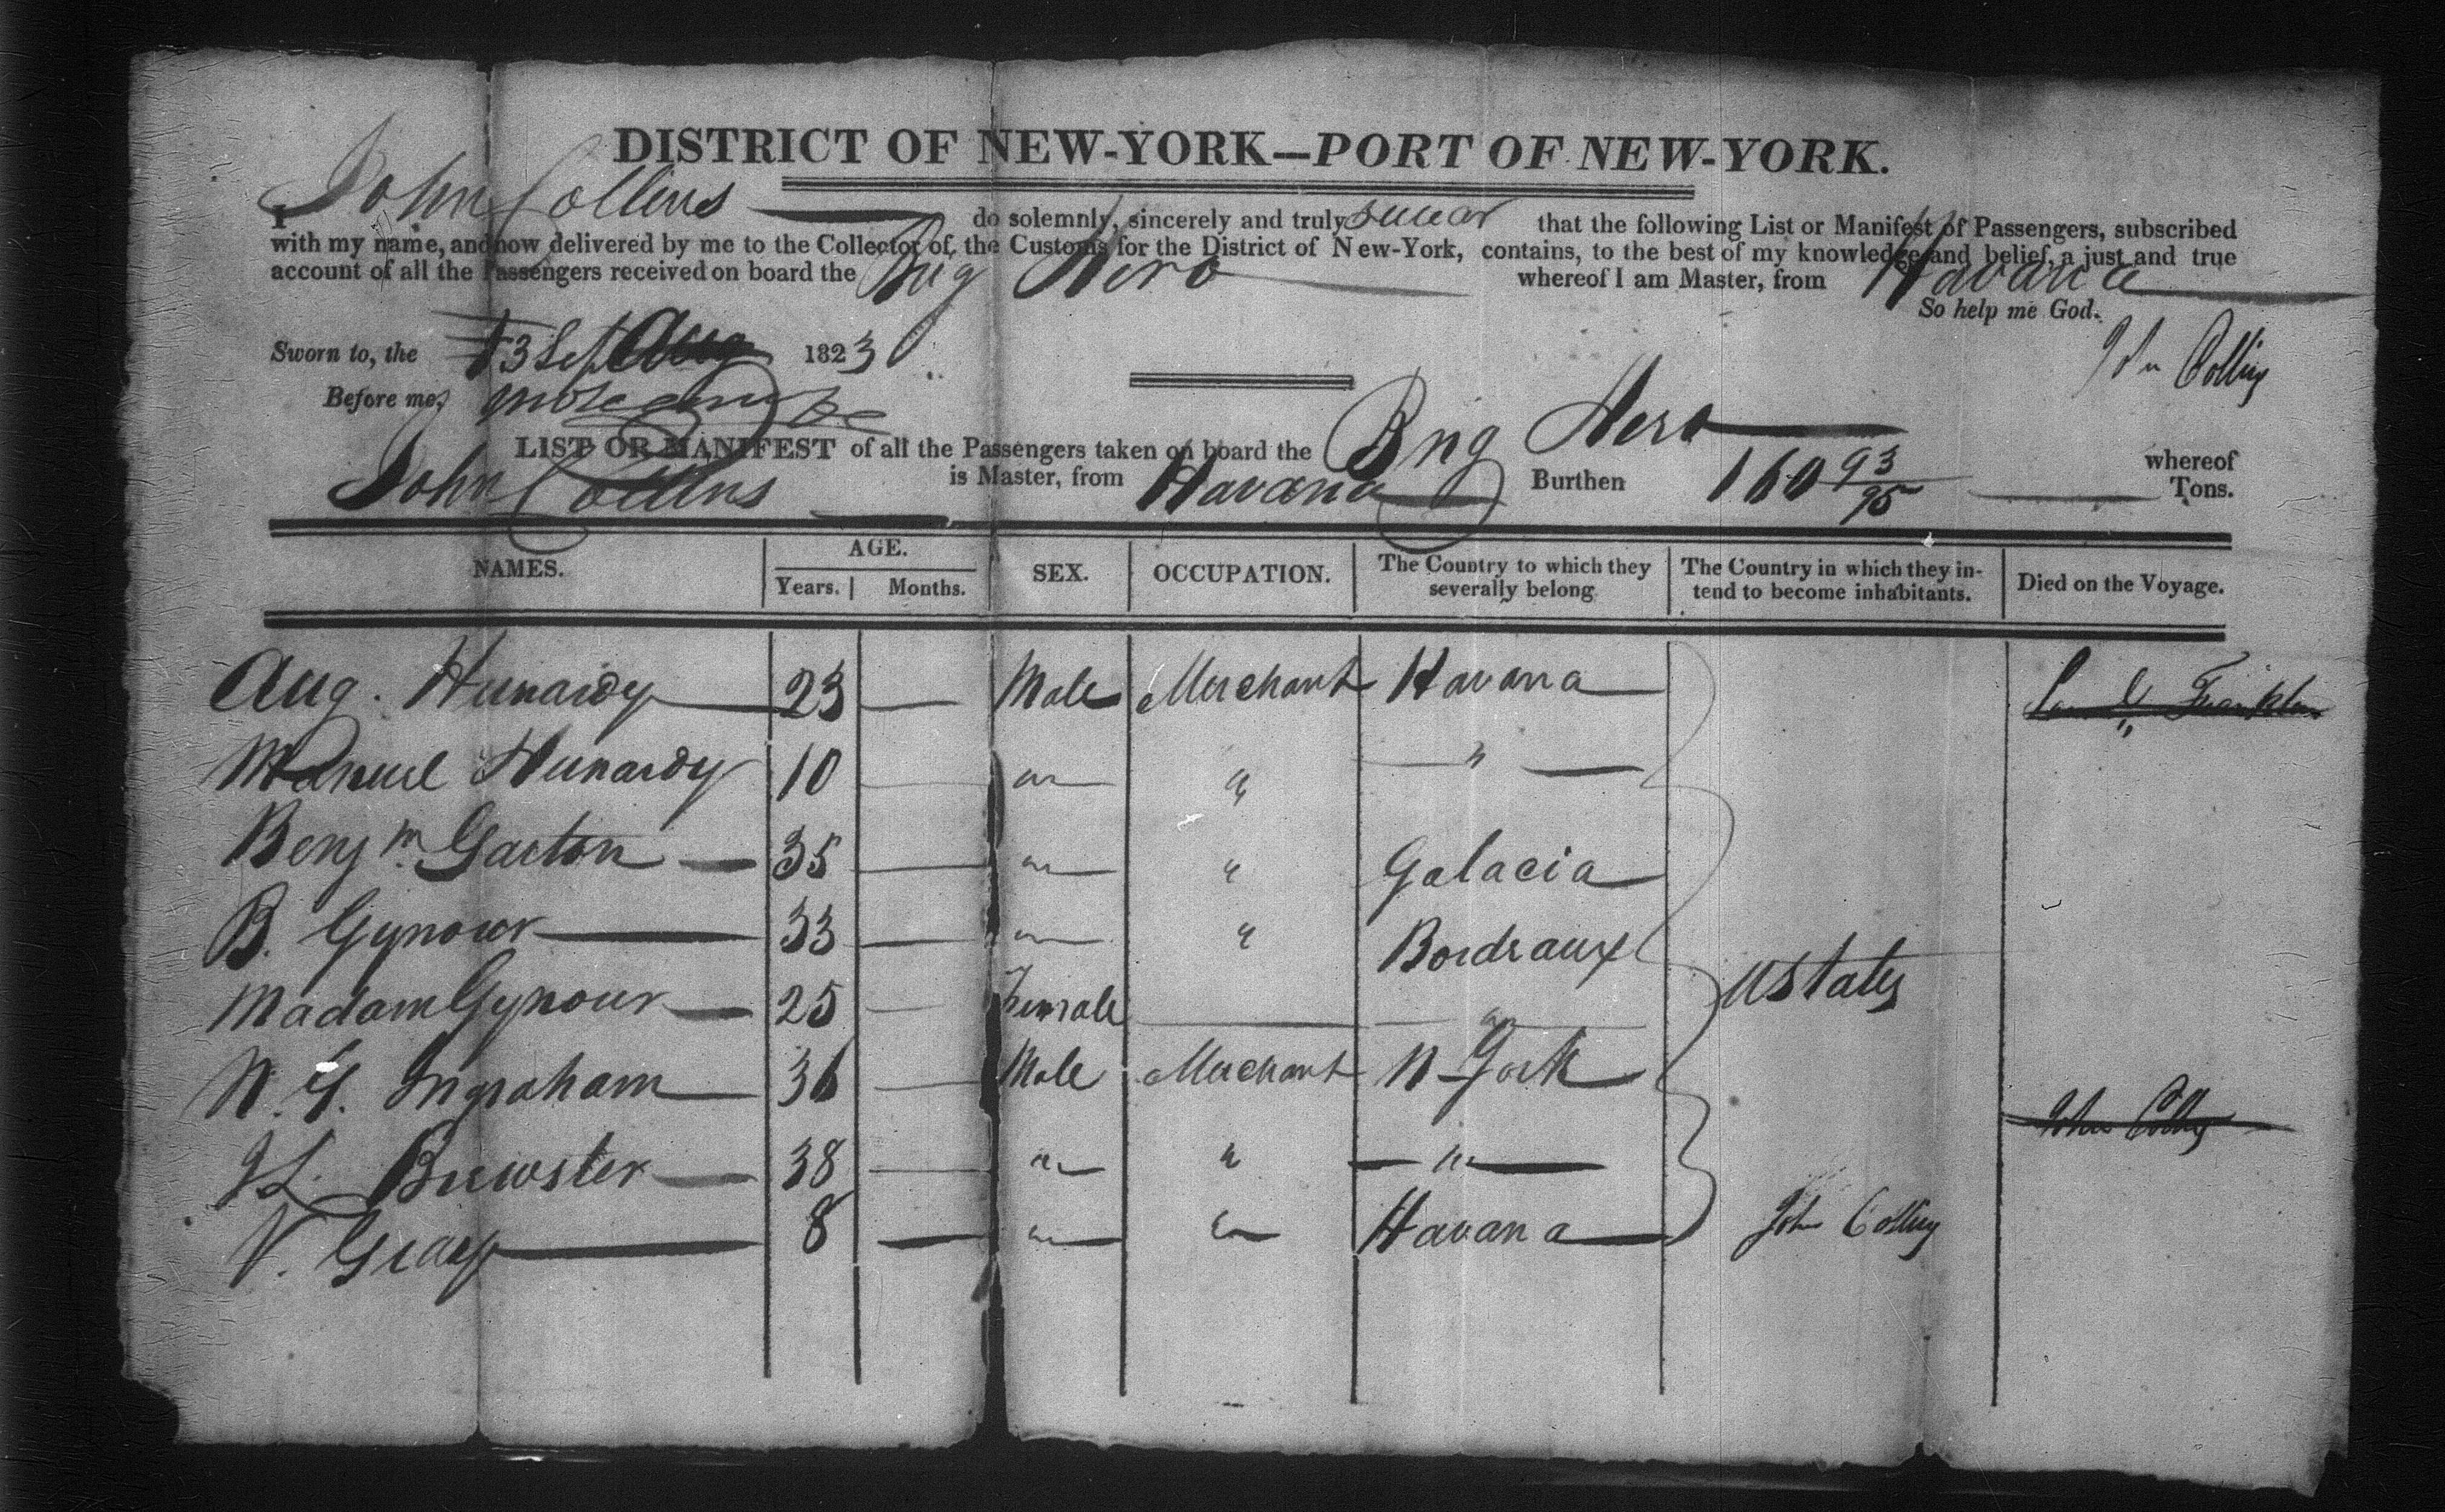 DISTRICT OF NEW-YORK—PORT OF NEW-YORK.
I John Collins do solemnly, sincerely and truly swear that the following List or Manifest of Passengers, subscribed
with my name, and now delivered by me to the Collector of the Customs for the District of New-York, contains, to the best of my knowledge and belief, a just and true
account of all the Passengers received on board the Brig Hero whereof I am Master, from Havana
So help me God.
Sworn to, the 3 Sept 1823 John Collins
Before me,
LIST OR MANIFEST of all the Passengers taken on board the Brig Hero whereof
John Collins is Master, from Havana Burthen 160 93/95 Tons.
NAMES. AGE. Years. Months. SEX. OCCUPATION. The Country to which they severally belong The Country in which they intend to become inhabitants. Died on the Voyage.
Aug. Hunardy 23 — Male Merchant Havana
Manuel Hunardy 10 — " " "
Benjm. Gaston 35 — " " Galacia
B. Gynour 33 — " " Bordeaux
Madam Gynour 25 — Female — "
UStates
N. G. Ingraham 36 — Male Merchant N-York
John Collins
Brewster 38 — " " "
V. Gray 8 — " " Havana
John Collins